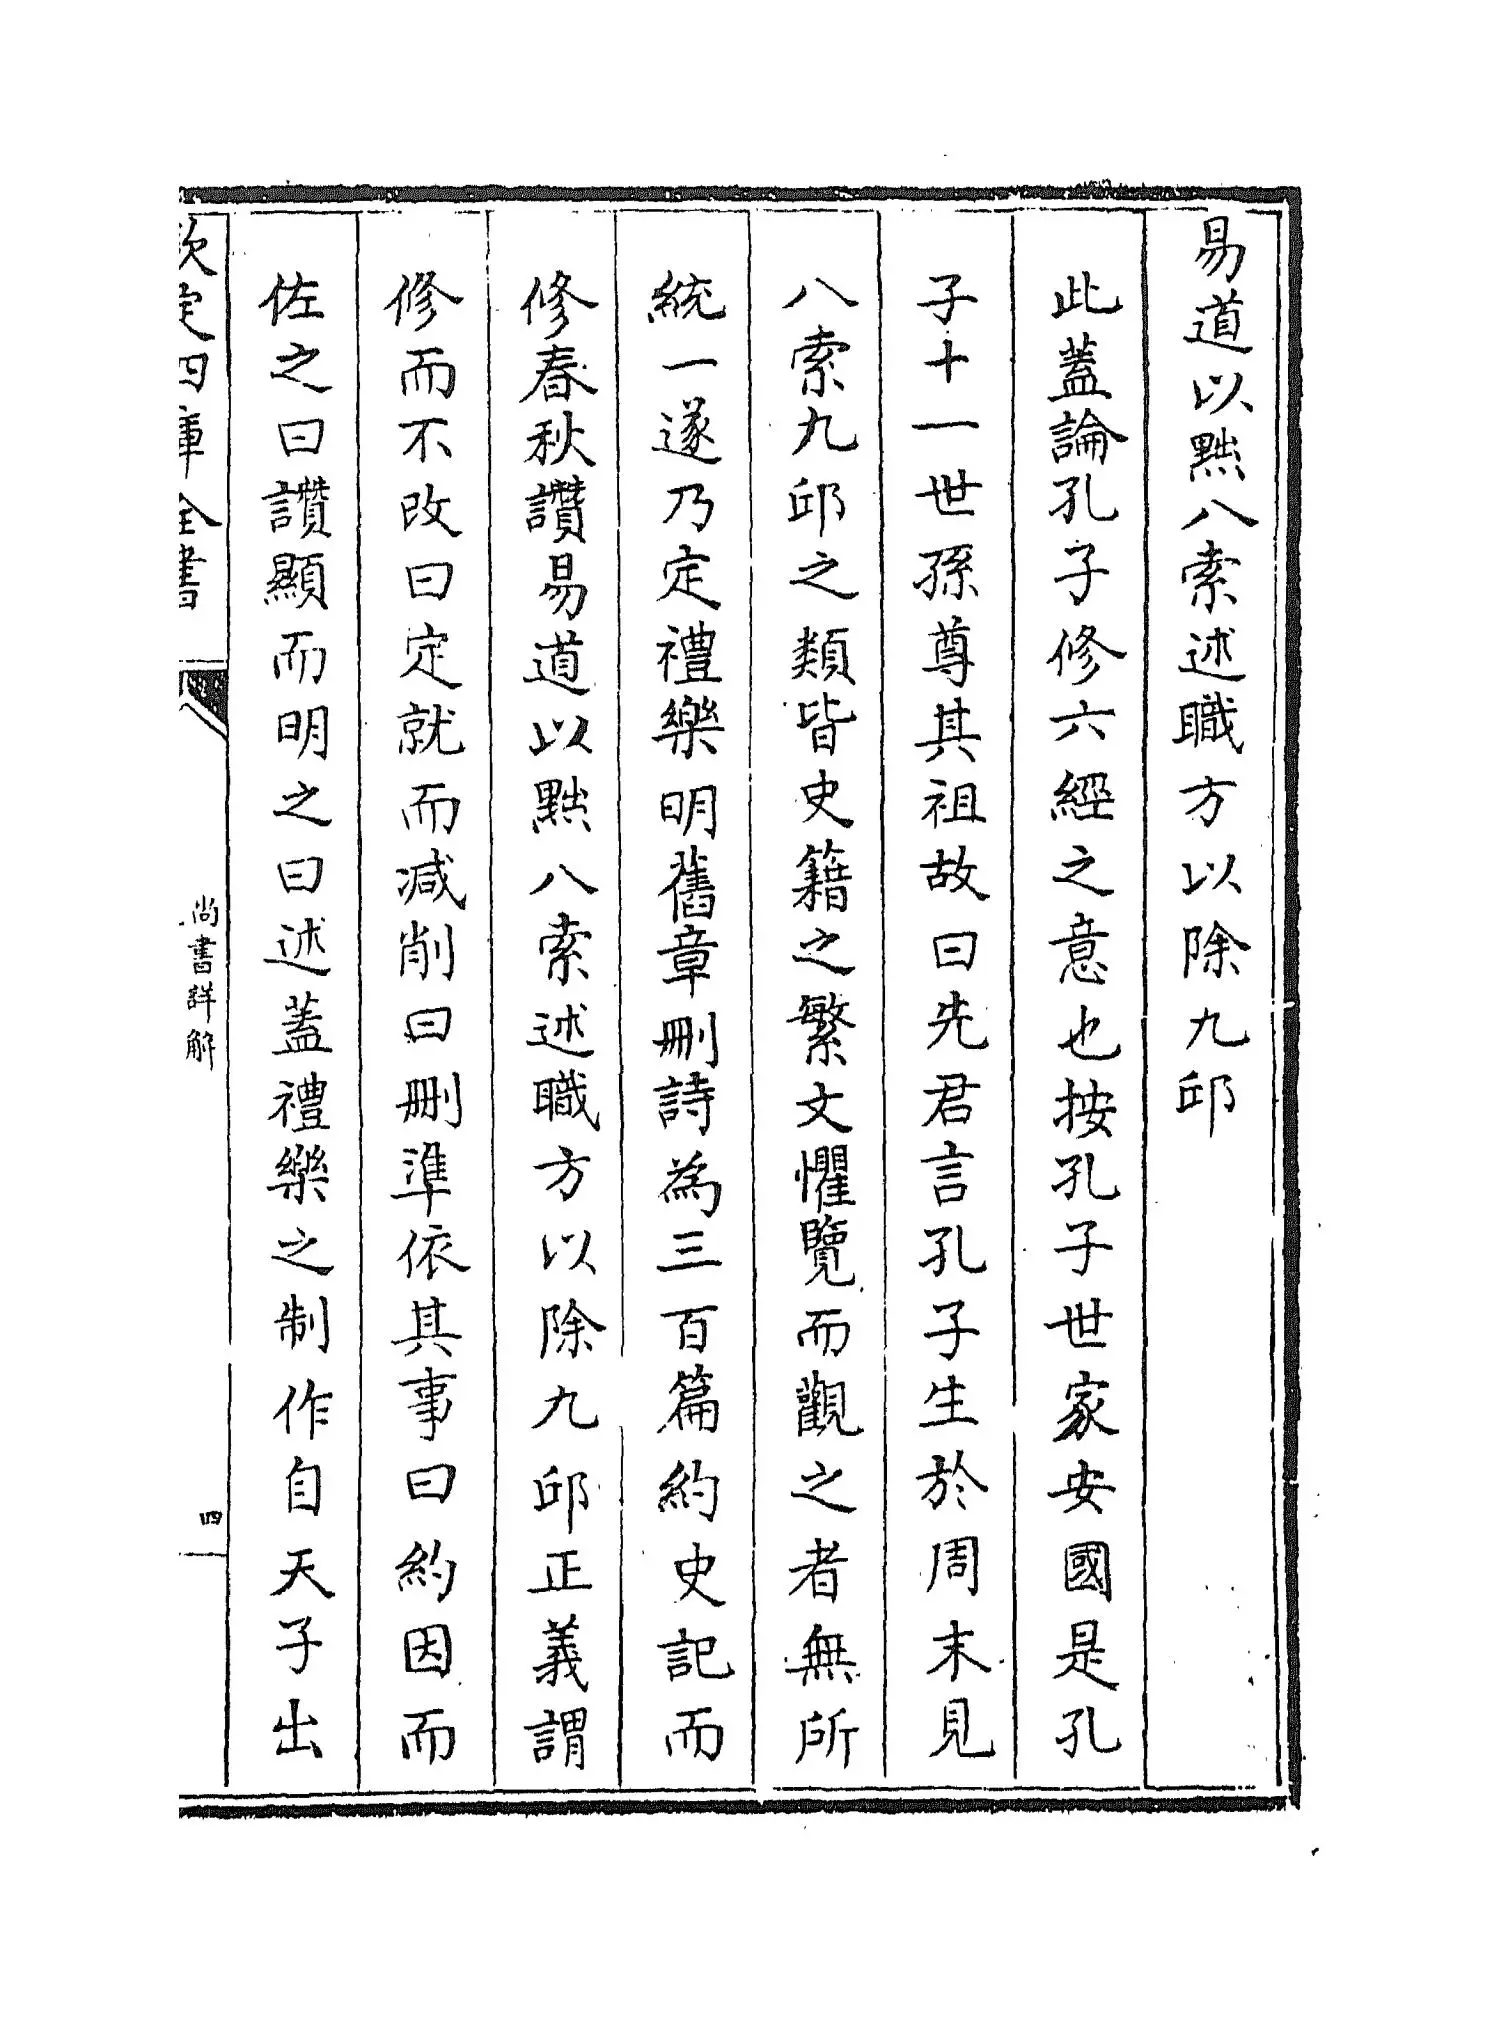 易道以黜八索述職方以除九邱
此蓋論孔子修六經之意也按孔子世家安國是孔
子十一世孫尊其祖故曰先君言孔子生於周末見
八索九邱之類皆史籍之繁文懼覽而觀之者無所
統一遂乃定禮樂明舊章刪詩為三百篇約史記而
修春秋讚易道以黜八索述職方以除九邱正義謂
修而不改曰定就而減削曰刪準依其事曰約因而
佐之曰讚顯而明之曰述蓋禮樂之制作自天子出
欽定四庫全書
尚書詳解
四